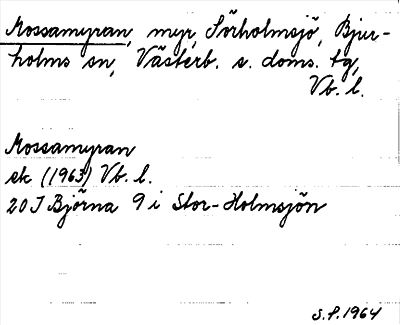 Mossamyran, myr, Sörholmsjö, Bjur-
holms sn, Västerb. s. doms. tg,
Vb. l.
Mossamyran
ek (1963) Vb. l.
20 J Björna 9 i Stor-Holmsjön
S.P. 1964